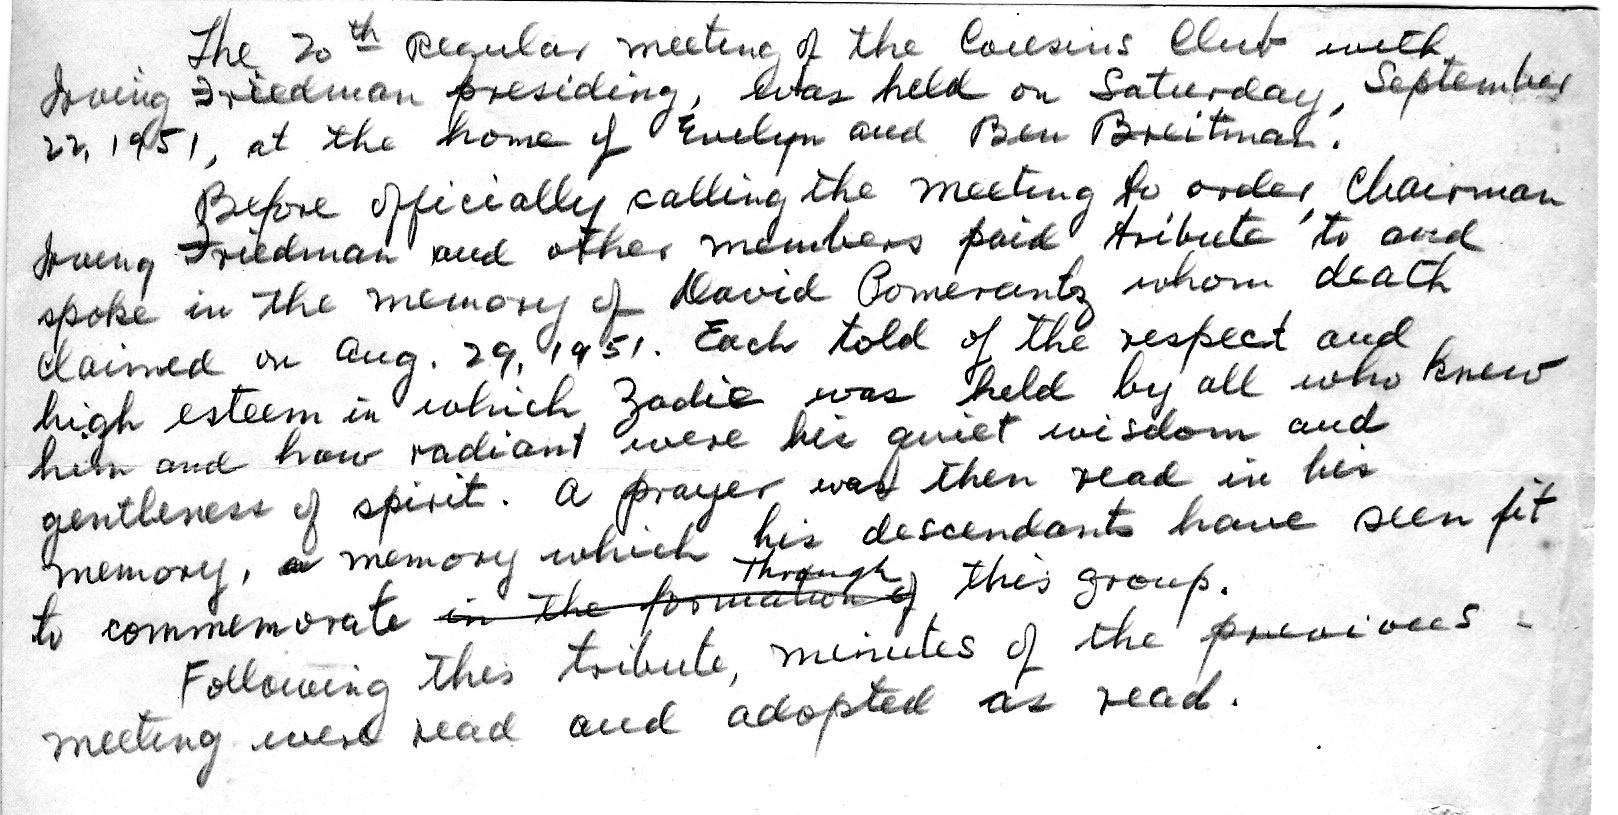 The 20th Regular meeting of the Cousins Club with
Irving Friedman presiding, was held on Saturday, September
22, 1951, at the home of Evelyn and Ben Breitman.
Before officially calling the meeting to order, Chairman
Irving Friedman and other members paid tribute to and
spoke in the memory of David Pomerantz whom death
claimed on Aug. 29, 1951. Each told of the respect and
high esteem in which Zadie was held by all who knew
him and how radiant were his quiet wisdom and
gentleness of spirit. A prayer was then read in his
memory, a memory which his descendants have seen fit
to commemorate in the formation of through this group.
Following this tribute, minutes of the previous -
meeting were read and adopted as read.